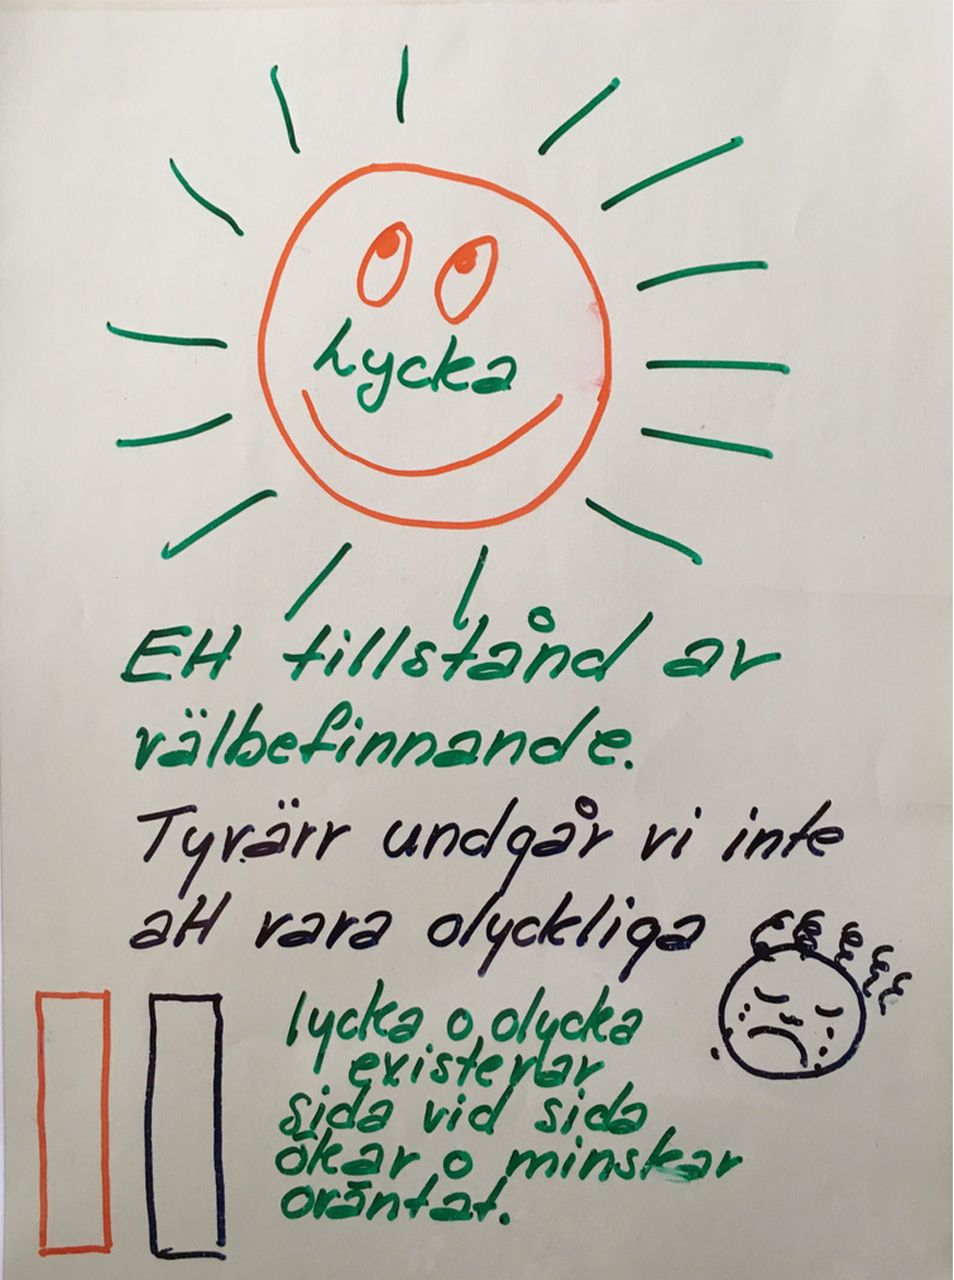 Lycka
Ett tillstånd av
välbefinnande.
Tyvärr undgår vi inte
att vara olyckliga
lycka o olycka
existerar
sida vid sida
ökar o minskar
oväntat.